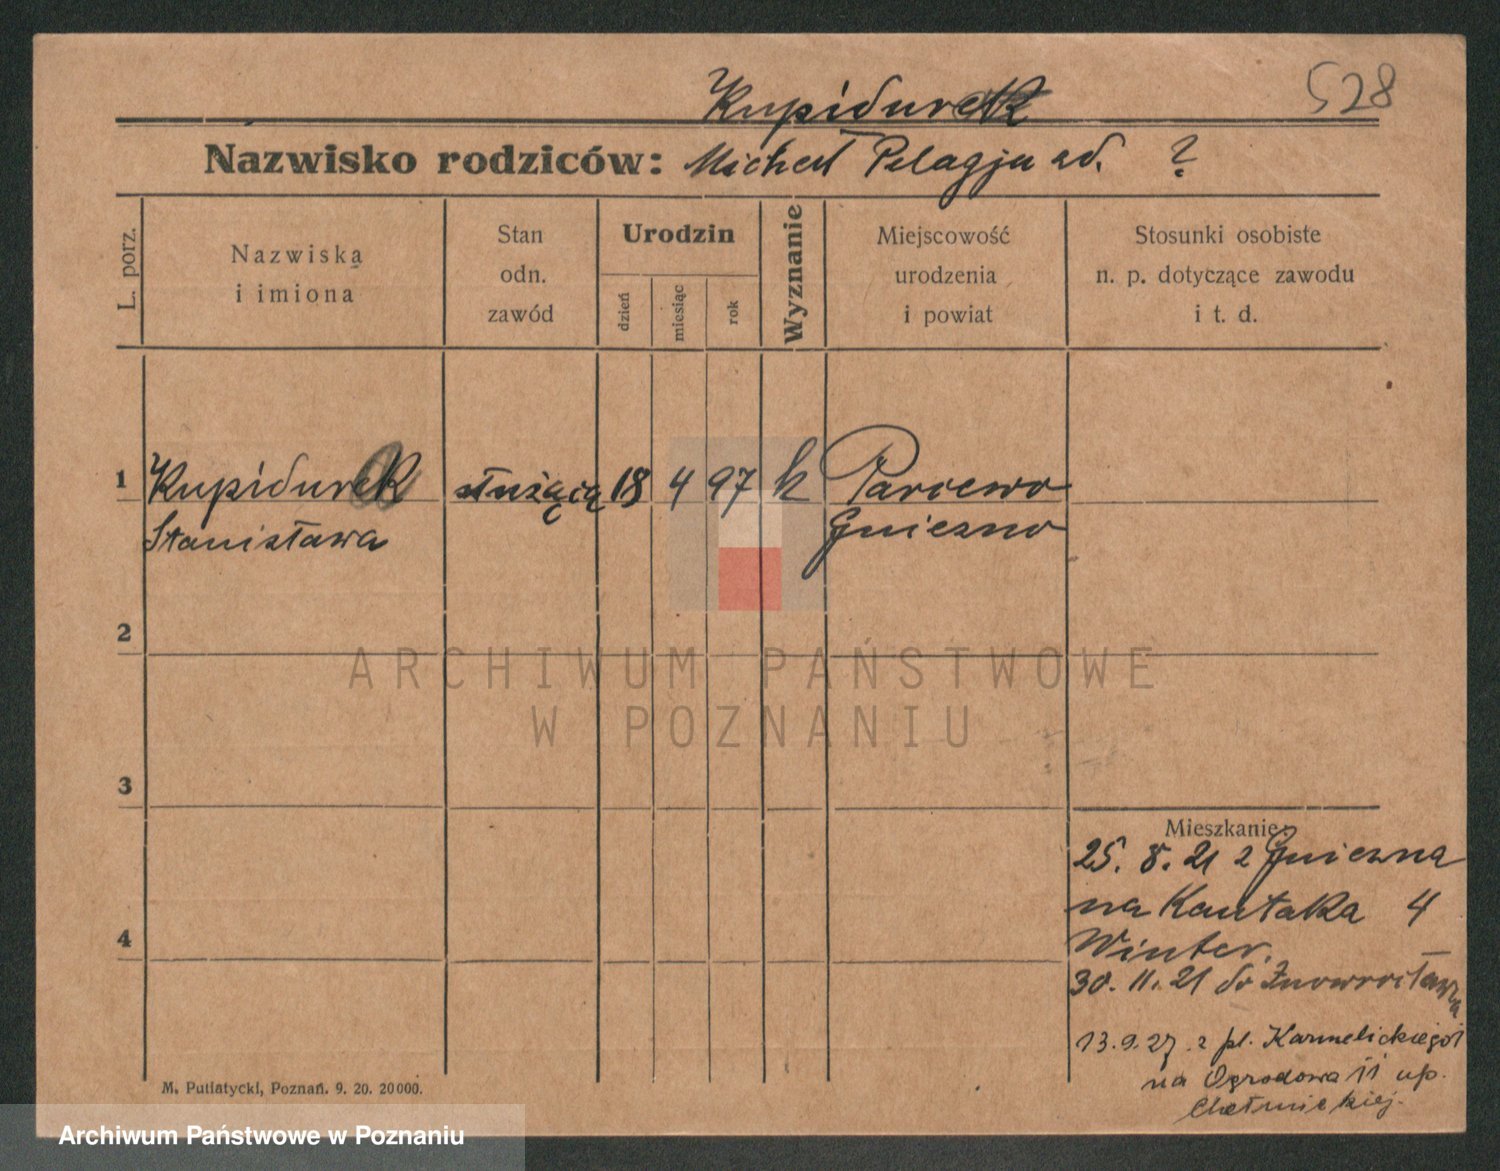 528
Kupidurek
Nazwisko rodziców: Michał Pelagja zd. ?
L. porz.
Nazwiska
i imiona
Stan
odn.
zawód
Urodzin
dzień
miesiąc
rok
Wyznanie
Miejscowość
urodzenia
i powiat
Stosunki osobiste
n. p. dotyczące zawodu
i t. d.
1 Kupidurek służąca 18 4 97 k Parcewo
Stanisława Gniezno
2
ARCHIWUM PAŃSTWOWE
W POZNANIU
3
Mieszkanie:
25. 8. 21 z Gniezna
na Kantaka 4
4
Winter.
30. 11. 21 do Inowrocławia
13. 9. 27. z pl. Karmelickiego 1
na Ogrodowa 11 up.
Chełmickiej.
M. Putiatycki, Poznań. 9. 20. 20000.
Archiwum Państwowe w Poznaniu